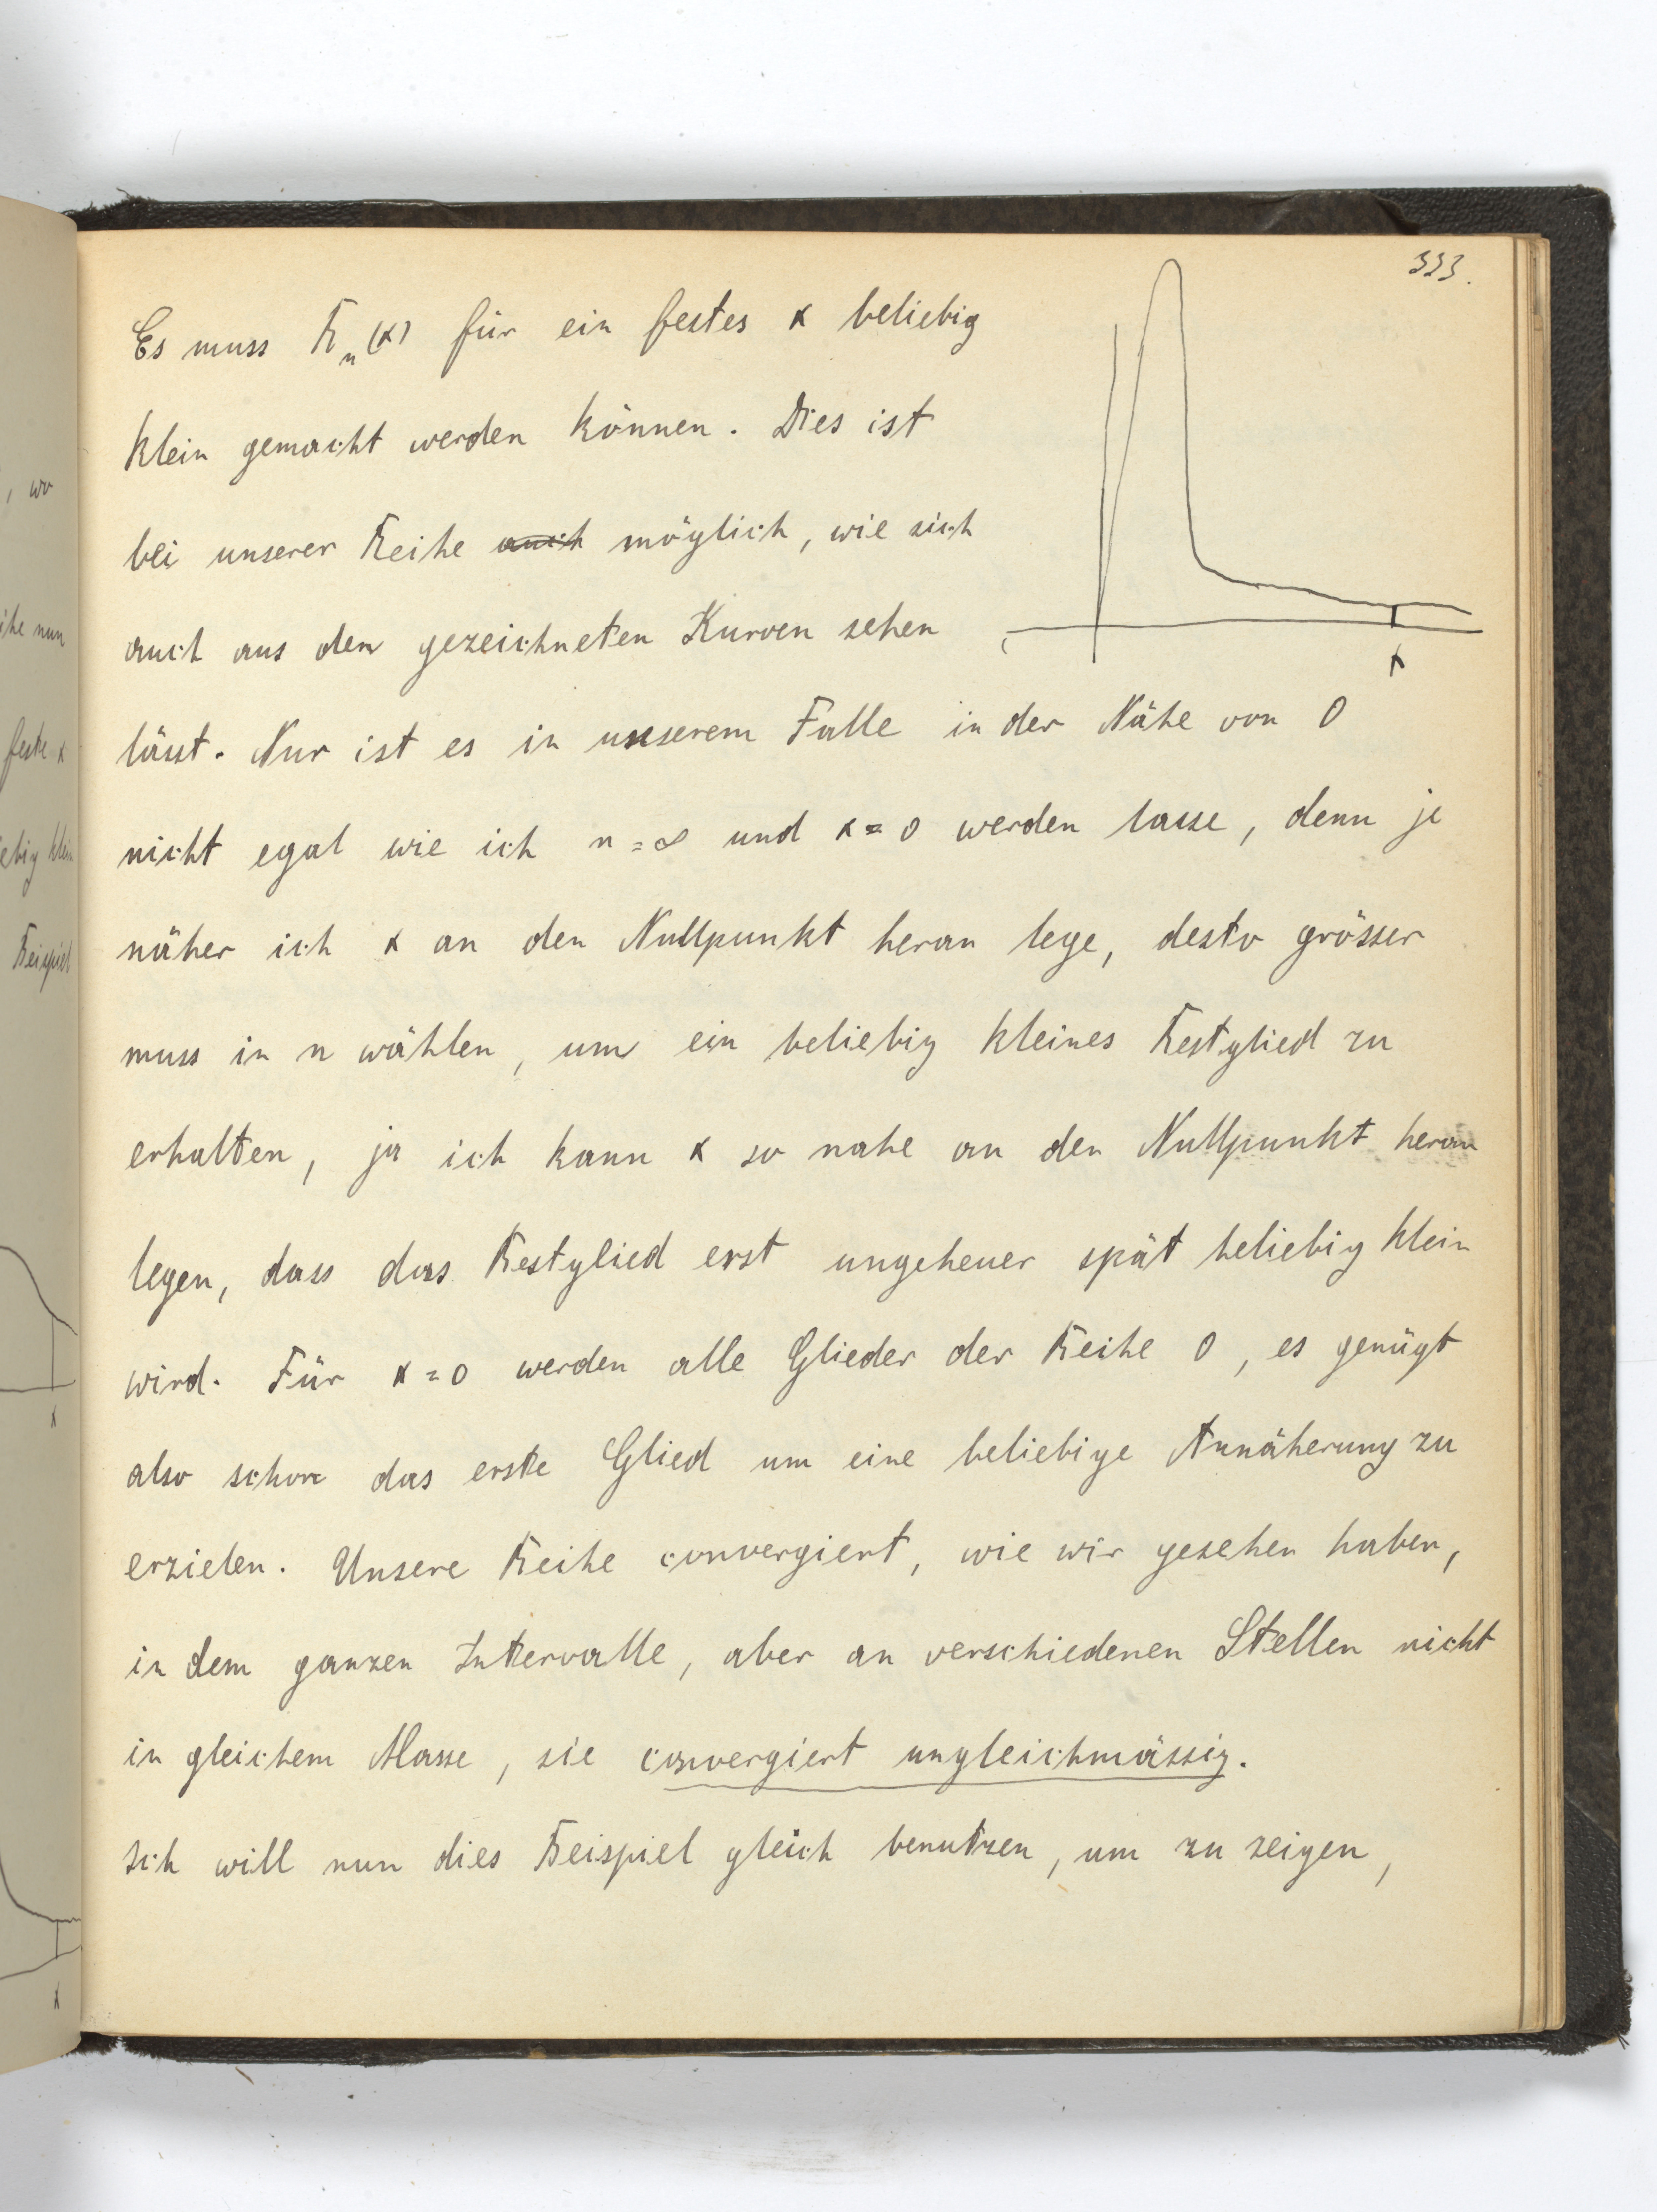 333.
Es muss R_n(x) für ein festes x beliebig
klein gemacht werden können. Dies ist
bei unserer Reihe auch möglich, wie sich
auch aus den gezeichneten Kurven sehen
x
lässt. Nur ist es in unserem Falle in der Nähe von 0
nicht egal wie ich n=∞ und x=0 werden lasse, denn je
näher ich x an den Nullpunkt heran lege, desto grösser
muss in n wählen, um ein beliebig kleines Restglied zu
erhalten, ja ich kann x so nahe an den Nullpunkt heran
legen, dass das Restglied erst ungeheuer spät beliebig klein
wird. Für x=0 werden alle Glieder der Reihe 0, es genügt
also schon das erste Glied um eine beliebige Annäherung zu
erzielen. Unsere Reihe convergiert, wie wir gesehen haben,
in dem ganzen Intervalle, aber an verschiedenen Stellen nicht
in gleichem Masse, sie convergiert ungleichmässig.
Ich will nun dies Beispiel gleich benutzen, um zu zeigen,